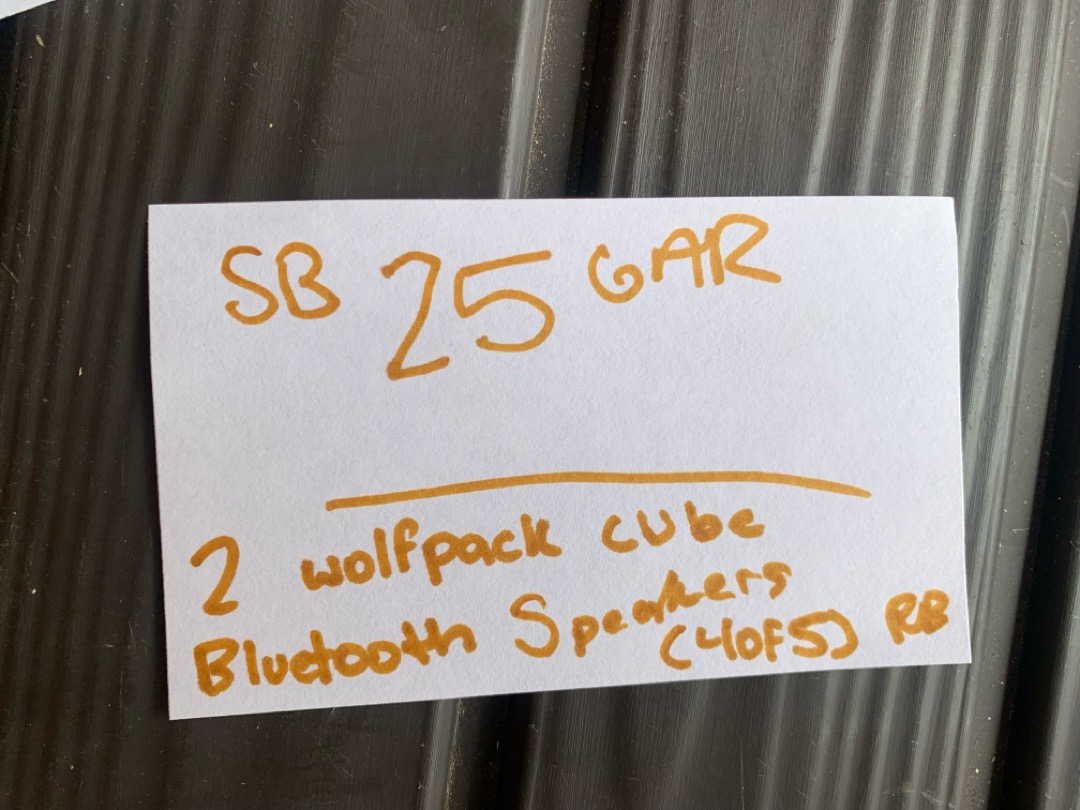 SB 25 GAR
2 wolfpack cube
Bluetooth Speakers
(4 of 5) RB